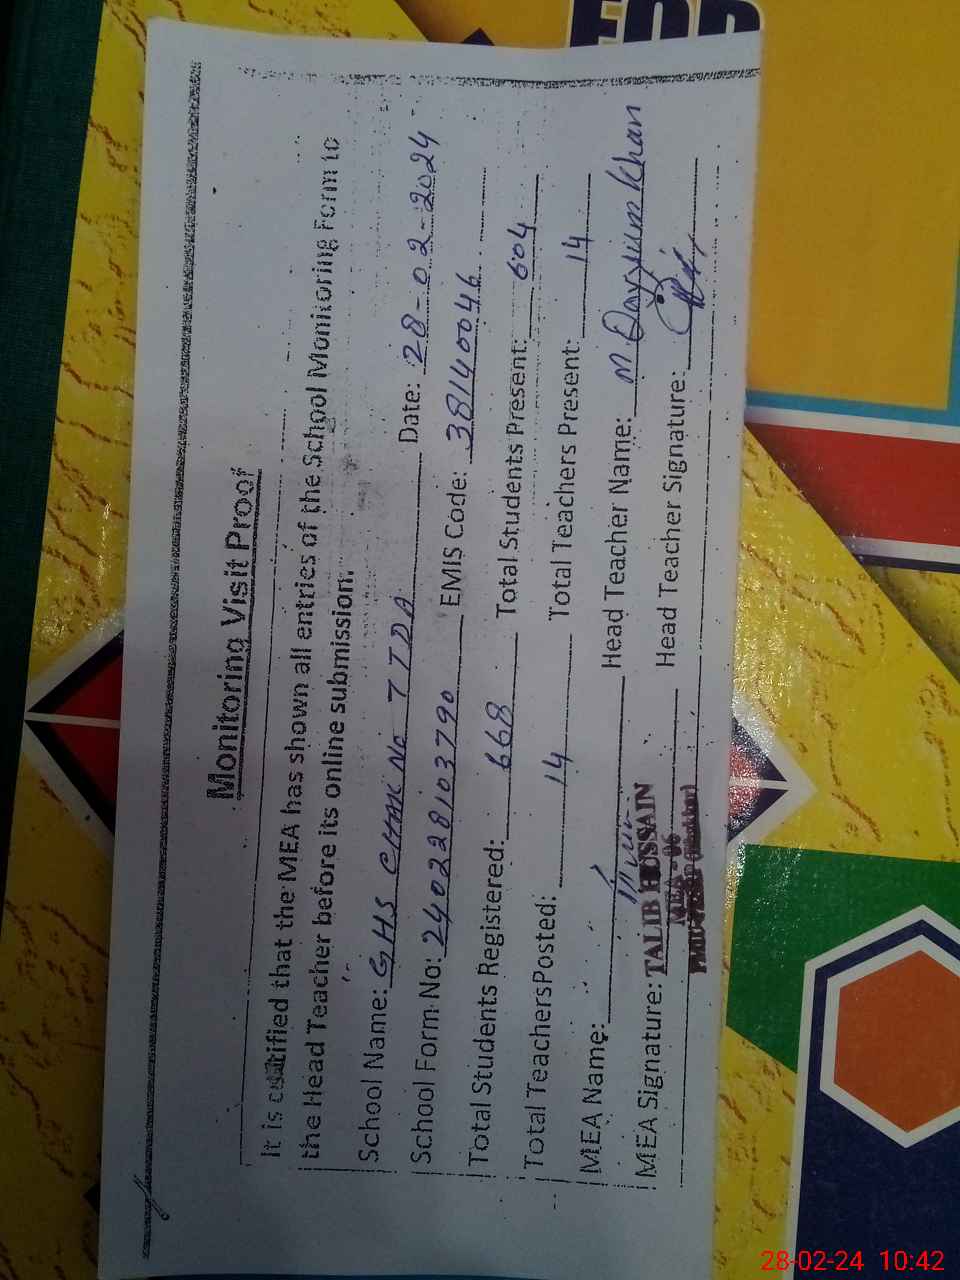 Monitoring Visit Proof
It is certified that the MEA has shown all entries of the School Monitoring Form to
the Head Teacher before its online submission.
School Name: GHS CHAK No 7 TDA Date: 28-02-2024
School Form No: 240228103790 EMIS Code: 38140046
Total Students Registered: 668 Total Students Present: 604
Total TeachersPosted: 14 Total Teachers Present: 14
MEA Name: Head Teacher Name: M Qayyum Khan
MEA Signature: TALIB HUSSAIN Head Teacher Signature:
MEA-06
28-02-24 10:42